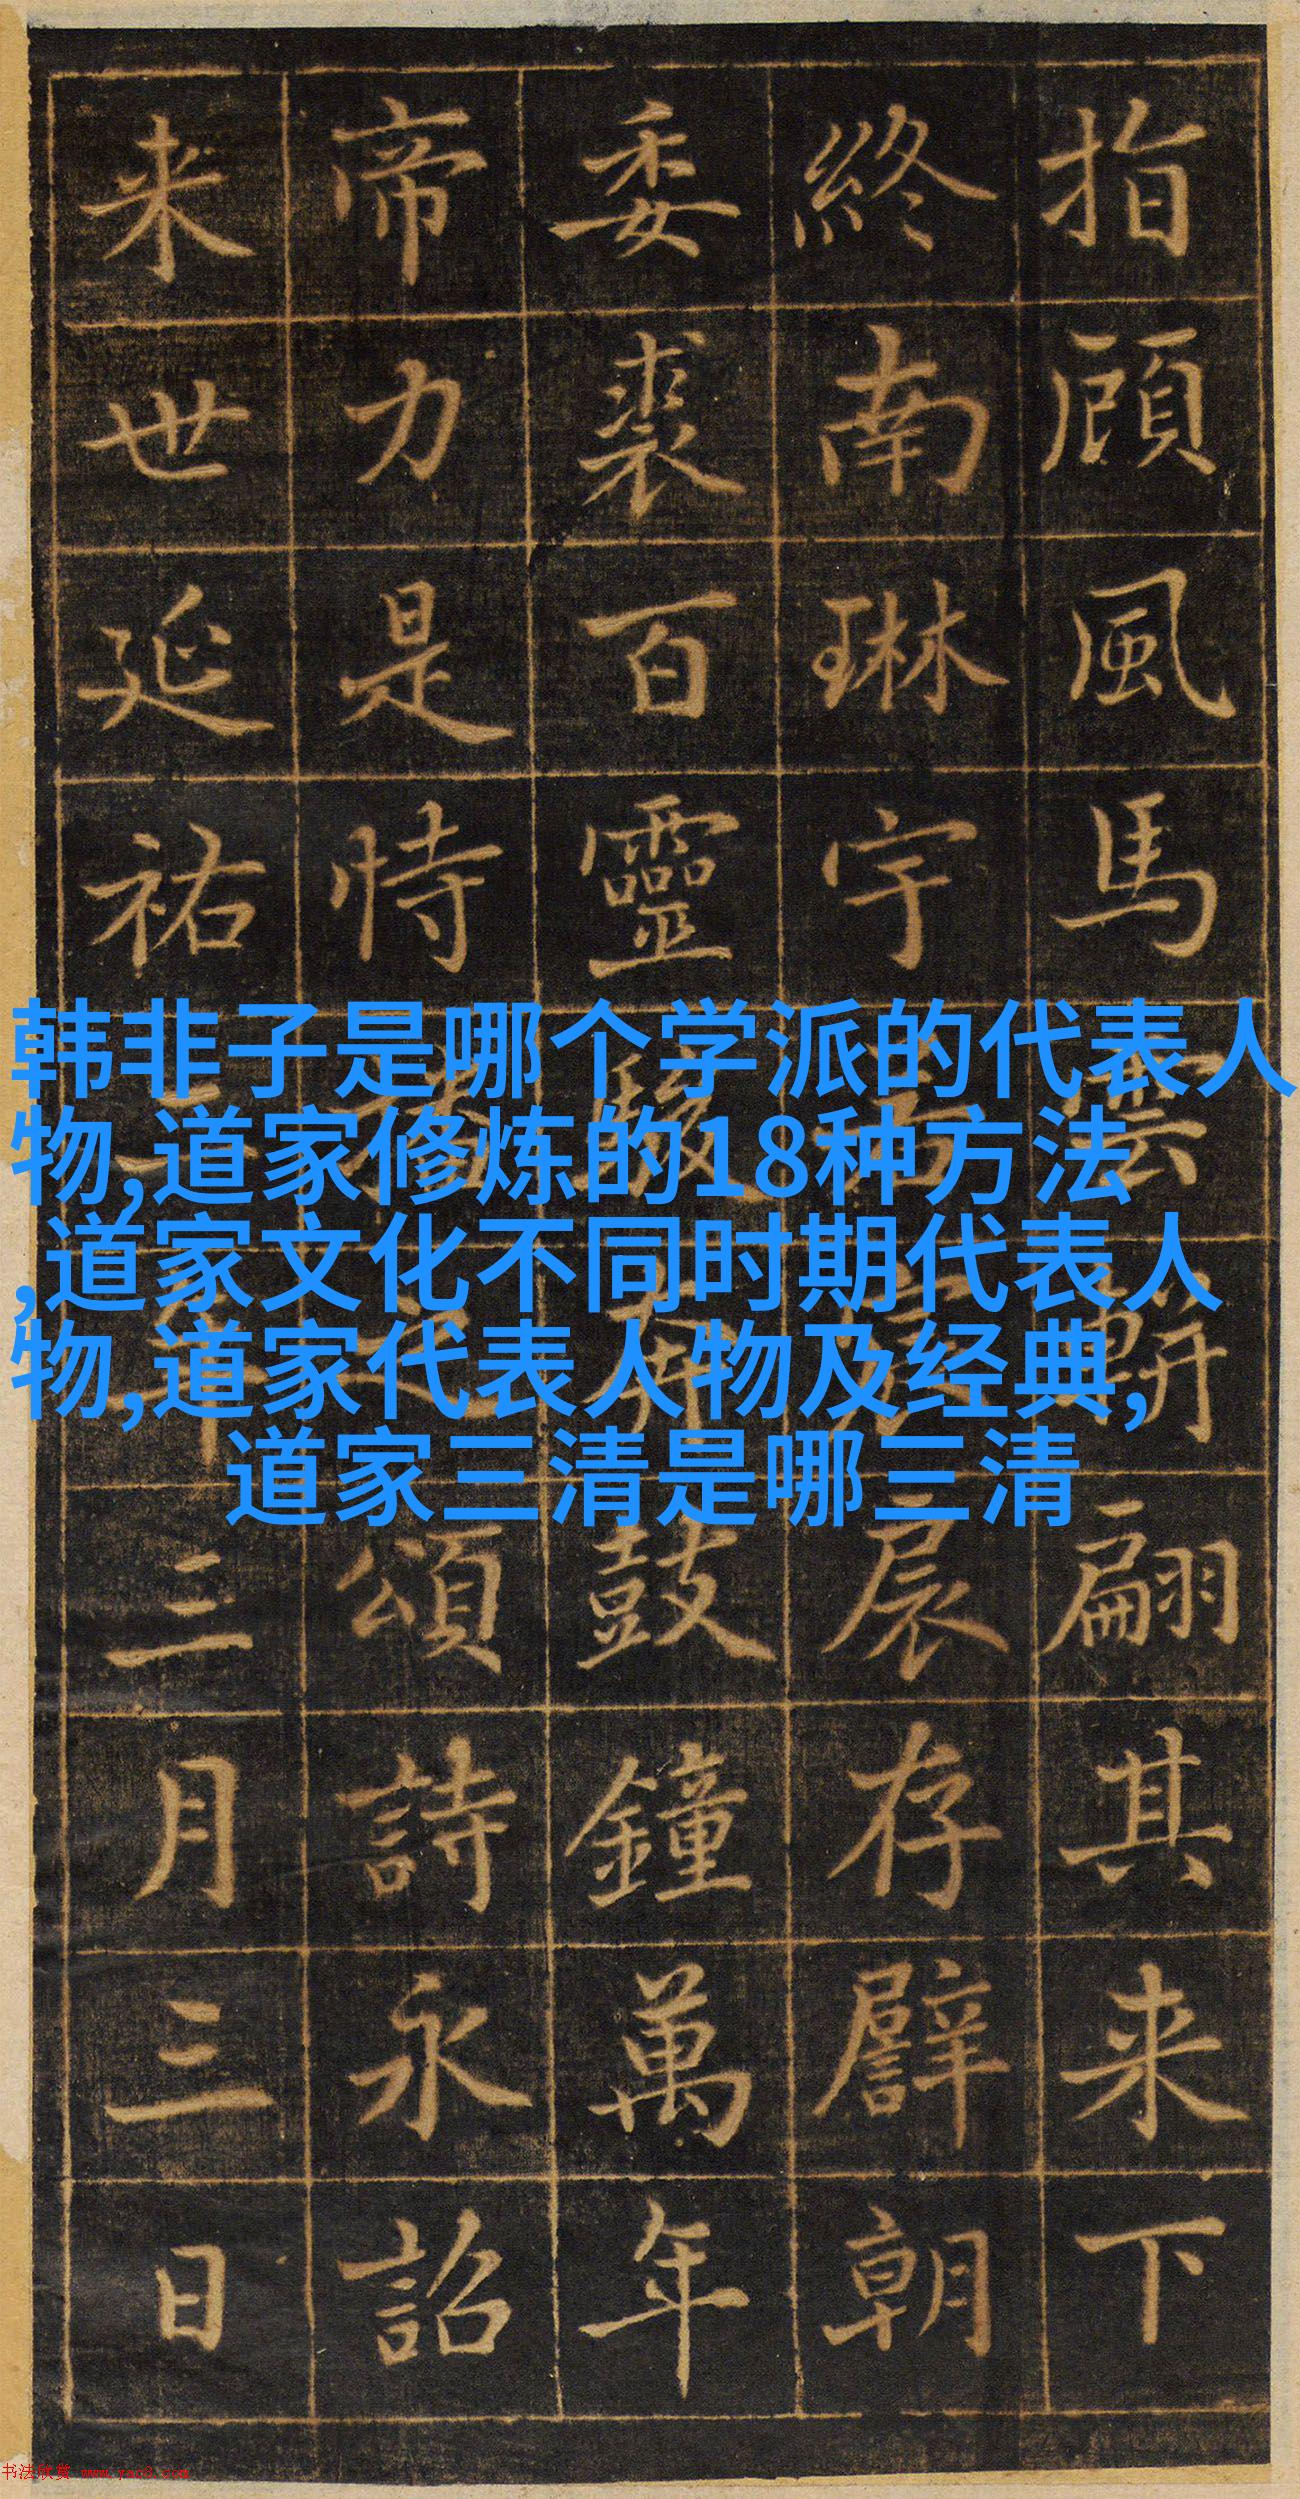 韩非子是哪个学派的代表人
物,道家修炼的18种方法
,道家文化不同时期代表人
物,道家代表人物及经典,
道家三清是哪三清
指顧風馬雲軿翩其来下
終南琳宇扆存辟朝
委裘百靈駿奔鼓鐘萬年
帝力是恃頌詩永詔
来世延祐年三月三日
书法欣赏 www.yac8.com